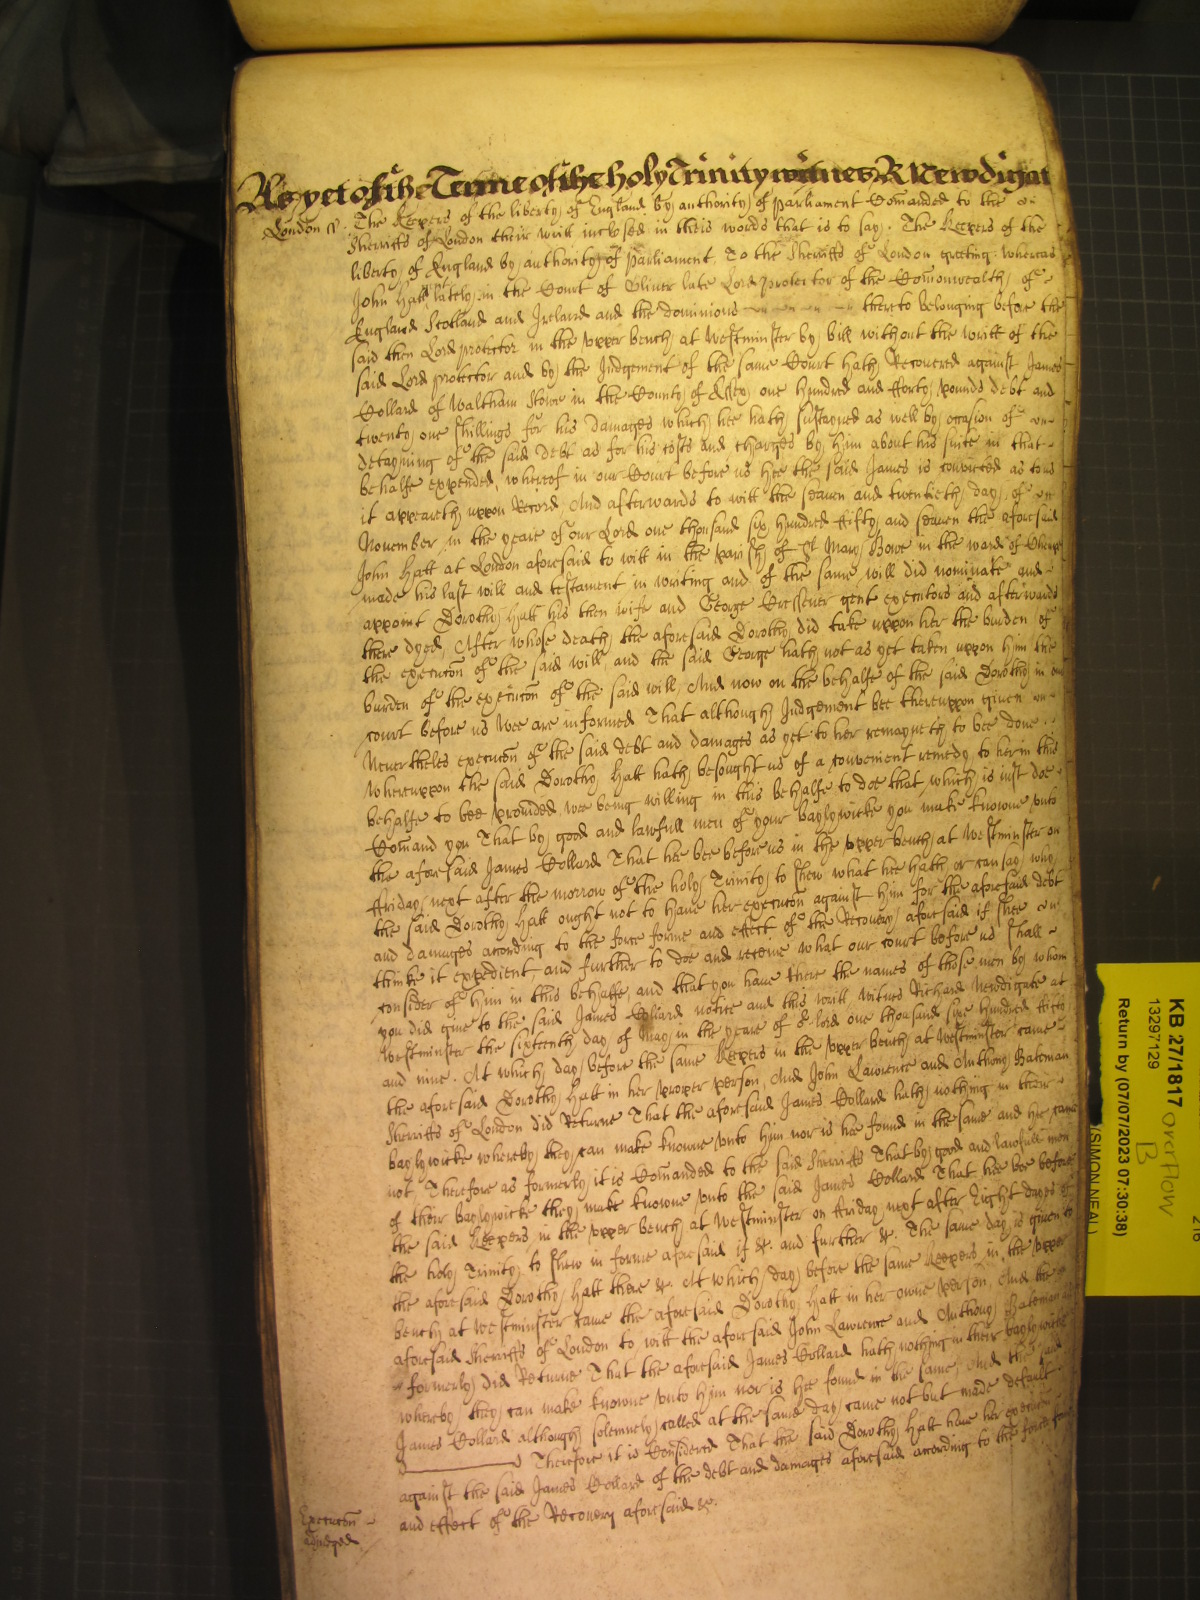 As yet of the Terme of the holy Trinity witnes R Newdigat
London ss. The Keepers of the liberty of England by authority of Parliament Comanded to the
Sherriffs of London their writt inclosed in theis words that is to say. The Keepers of the
liberty of England by authority of Parliament, To the Sherriffs of London greeting: whereas
John Hatt lately in the Court of Oliver late Lord protector of the Comonwealth of
England Scotland and Ireland and the dominions thereto belonging before the
said then Lord protector in the upper bench at Westminster by bill without the writt of the
said Lord protector and by the Judgement of the same Court hath Recovered against James
Collard of Waltham Stowe in the County of Essex one hundred and fforty pounds debt and
twenty one shillings for his damages which hee hath sustayned as well by occasion of
detayning of the said debt as for his costs and charges by him about his suite in that
behalfe expended, whereof in our Court before us hee the said James is convicted as to us
it appeareth uppon Record And afterwards to witt the seaven and twentieth day of
November in the yeare of our Lord one thousand six hundred ffifty and seaven the aforesaid
John Hatt at London aforesaid to witt in the parish of St Mary Bowe in the ward of
made his last will and testament in writing and of the same will did nominate and
appoint Dorothy Hatt his then wife and George Cressener gent executors and afterwards
there dyed, After whose death the aforesaid Dorothy did take uppon her the burden of
the execucon of the said will, and the said George hath not as yet taken uppon him the
burden of the execucon of the said will, And now on the behalfe of the said Dorothy in
court before us wee are informed That although Judgement bee thereuppon given
Neverthelesse execucon of the said debt and damages as yet to her remayneth to bee done
Whereuppon the said Dorothy Hatt hath besought us of a convenient remedy to her in this
behalfe to bee provided, wee being willing in this behalfe to doe that which is iust doe
Comand you That by good and lawfull men of your baylywicke you make knowne unto
the aforesaid James Collard That hee bee before us in the upper bench at Westminster on
ffriday next after the morrow of the holy Trinity to shew what hee hath or can say why
the said Dorothy Hatt ought not to have her execucon against him for the aforesaid debt
and damages according to the force forme and effect of the Recovery aforesaid if shee
thinke it expedient, and further to doe and receive what our court before us shall
consider of him in this behalfe, and that you have there the names of those men by whom
you did give to the said James Collard notice and this writt, Witnes Richard Newdigate at
Westminster the sixteenth day of May in the yeare of or lord one thousand sixe hundred fifty
and nine. At which day before the same Keepers in the upper bench at Westminster came
the aforesaid Dorothy Hatt in her proper person, And John Lawrence and Anthony Bateman
Sherriffs of London did Returne That the aforesaid James Collard hath nothing in their
baylywicke whereby they can make knowne unto him nor is hee found in the same and hee came
not, Therefore as formerly it is Comanded to the said Sherriffs That by good and lawfull men
of their baylywicke they make knowne unto the said James Collard That hee bee before
the said Keepers in the upper bench at Westminster on ffriday next after Eight dayes of
the holy Trinity to shew in forme aforesaid if &c. and further &c. The same day is given to
the aforesaid Dorothy Hatt there &c. At which day before the same Keepers in the upper
bench at Westminster came the aforesaid Dorothy Hatt in her owne person, And the
aforesaid Sherriffs of London to witt the aforesaid John Lawrence and Anthony Bateman
formerly did Returne That the aforesaid James Collard hath nothing in their baylywicke
whereby they can make knowne unto him nor is hee found in the same, And the said
James Collard although solemnely called at the same day came not but made default
Therefore it is Considered That the said Dorothy Hatt have her execucon
against the said James Collard of the debt and damages aforesaid according to the force forme
and effect of the Recovery aforesaid &c.
Execucon
adiudged
KB 27/1817
13297129
Return by (07/07/2023 07:30:38)
(SIMON NEAL)
overflow
B